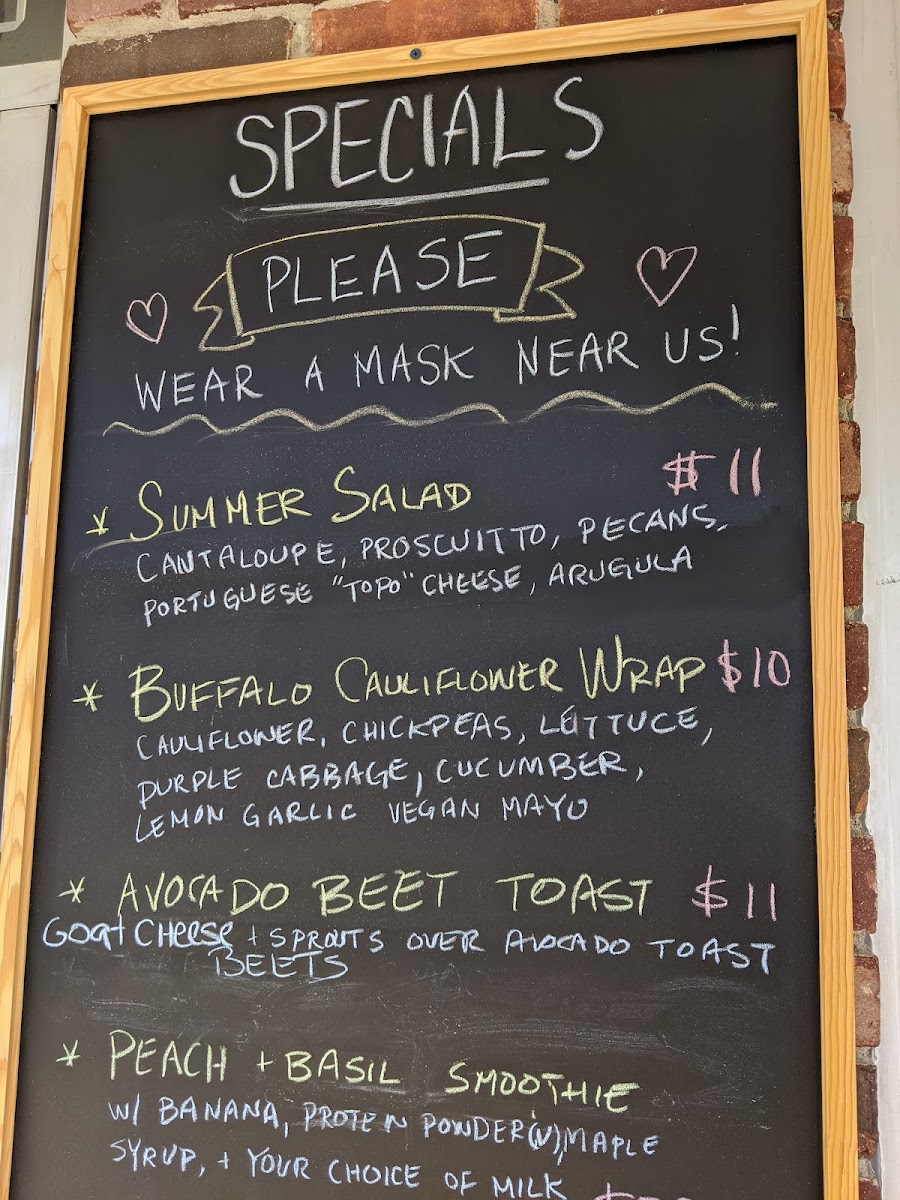 SPECIALS
PLEASE
WEAR A MASK NEAR US!
* SUMMER SALAD $11
CANTALOUPE, PROSCUITTO, PECANS,
PORTUGUESE "TOPO" CHEESE, ARUGULA
* BUFFALO CAULIFLOWER WRAP $10
CAULIFLOWER, CHICKPEAS, LETTUCE,
PURPLE CABBAGE, CUCUMBER,
LEMON GARLIC VEGAN MAYO
* AVOCADO BEET TOAST $11
Goat CHeese + SPROUTS OVER AVOCADO TOAST
BEETS
* PEACH + BASIL SMOOTHIE
W/ BANANA, PROTEIN POWDER(V), MAPLE
SYRUP, + YOUR CHOICE OF MILK